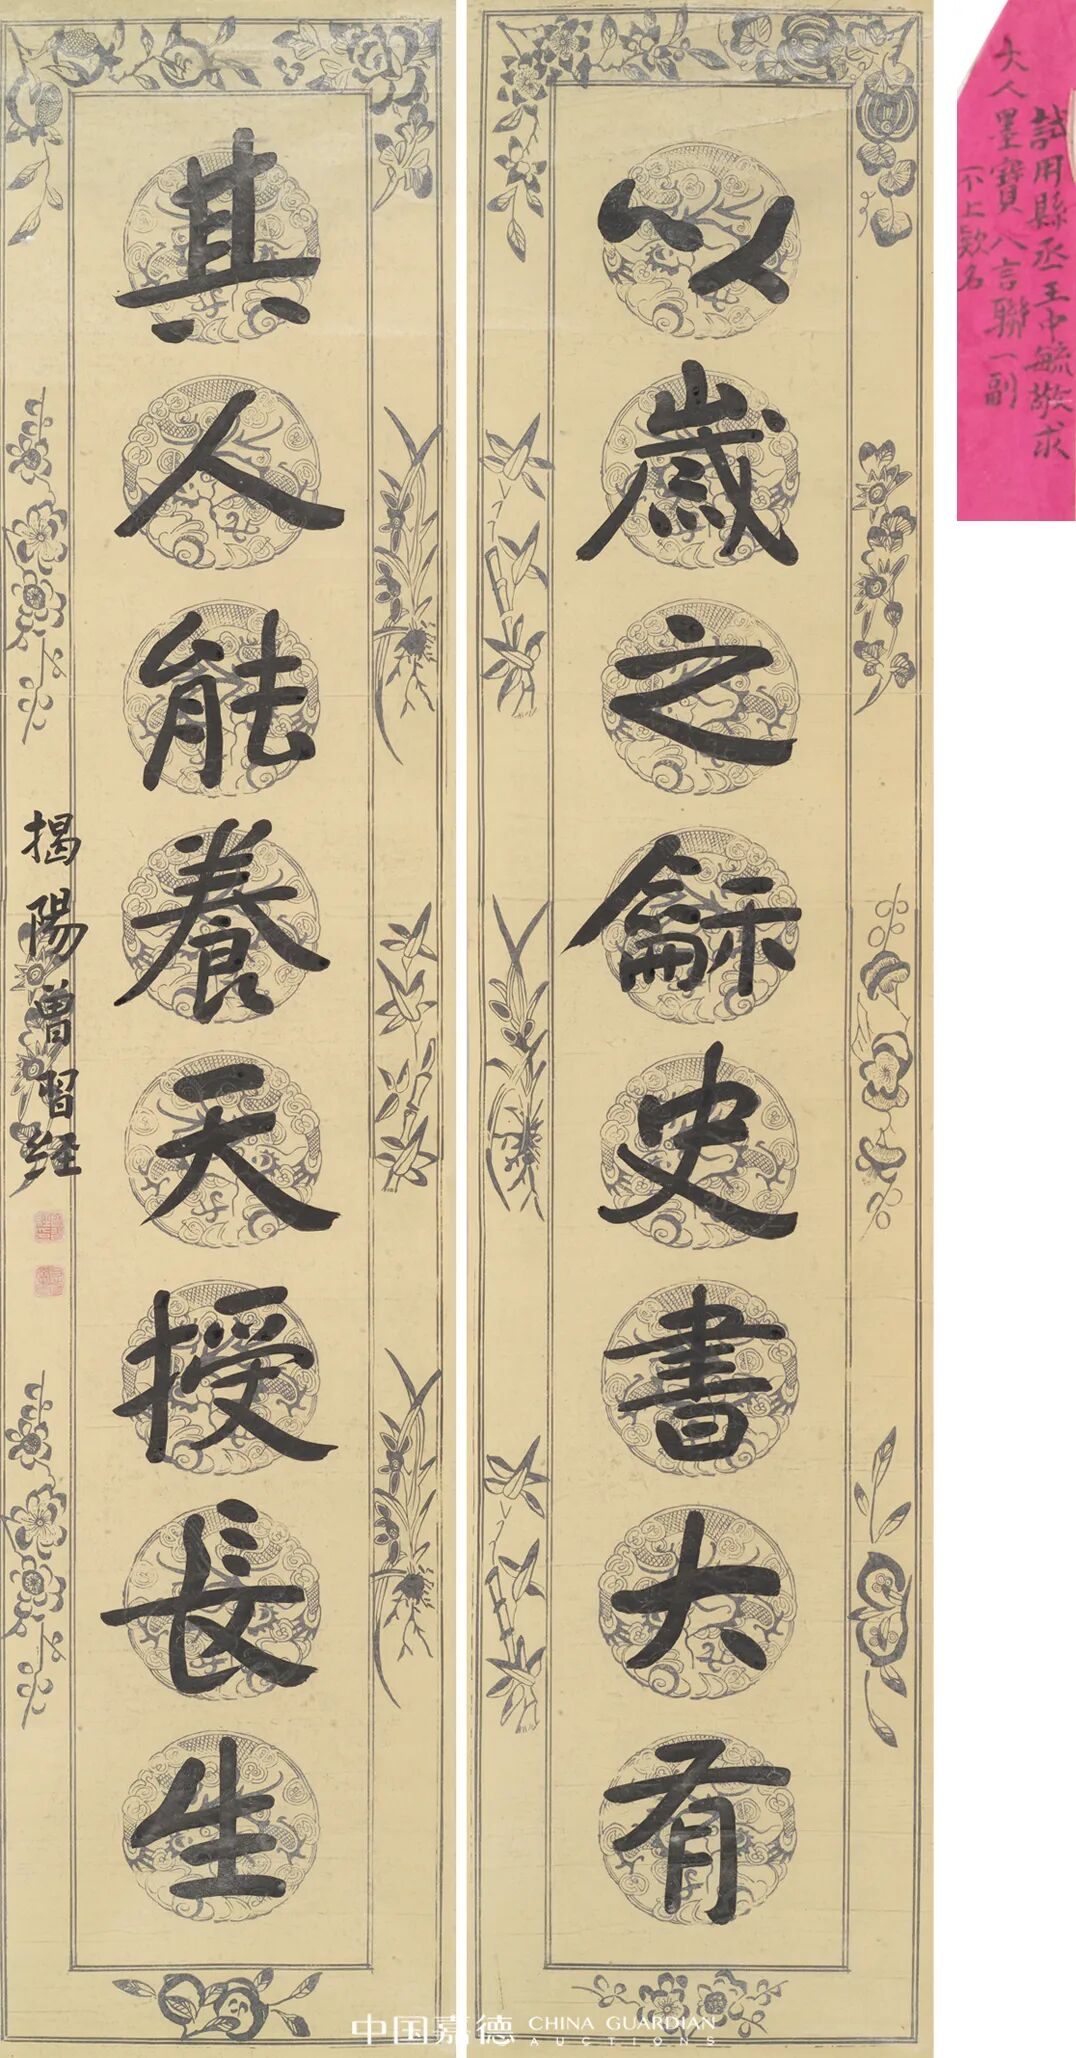 以歲之龢史書大有
其人能養天授長生
揭陽曾習經
試用縣丞王中毓敬求
大人墨寶八言聯一副
不上欵名
中国嘉德 CHINA GUARDIAN
AUCTIONS